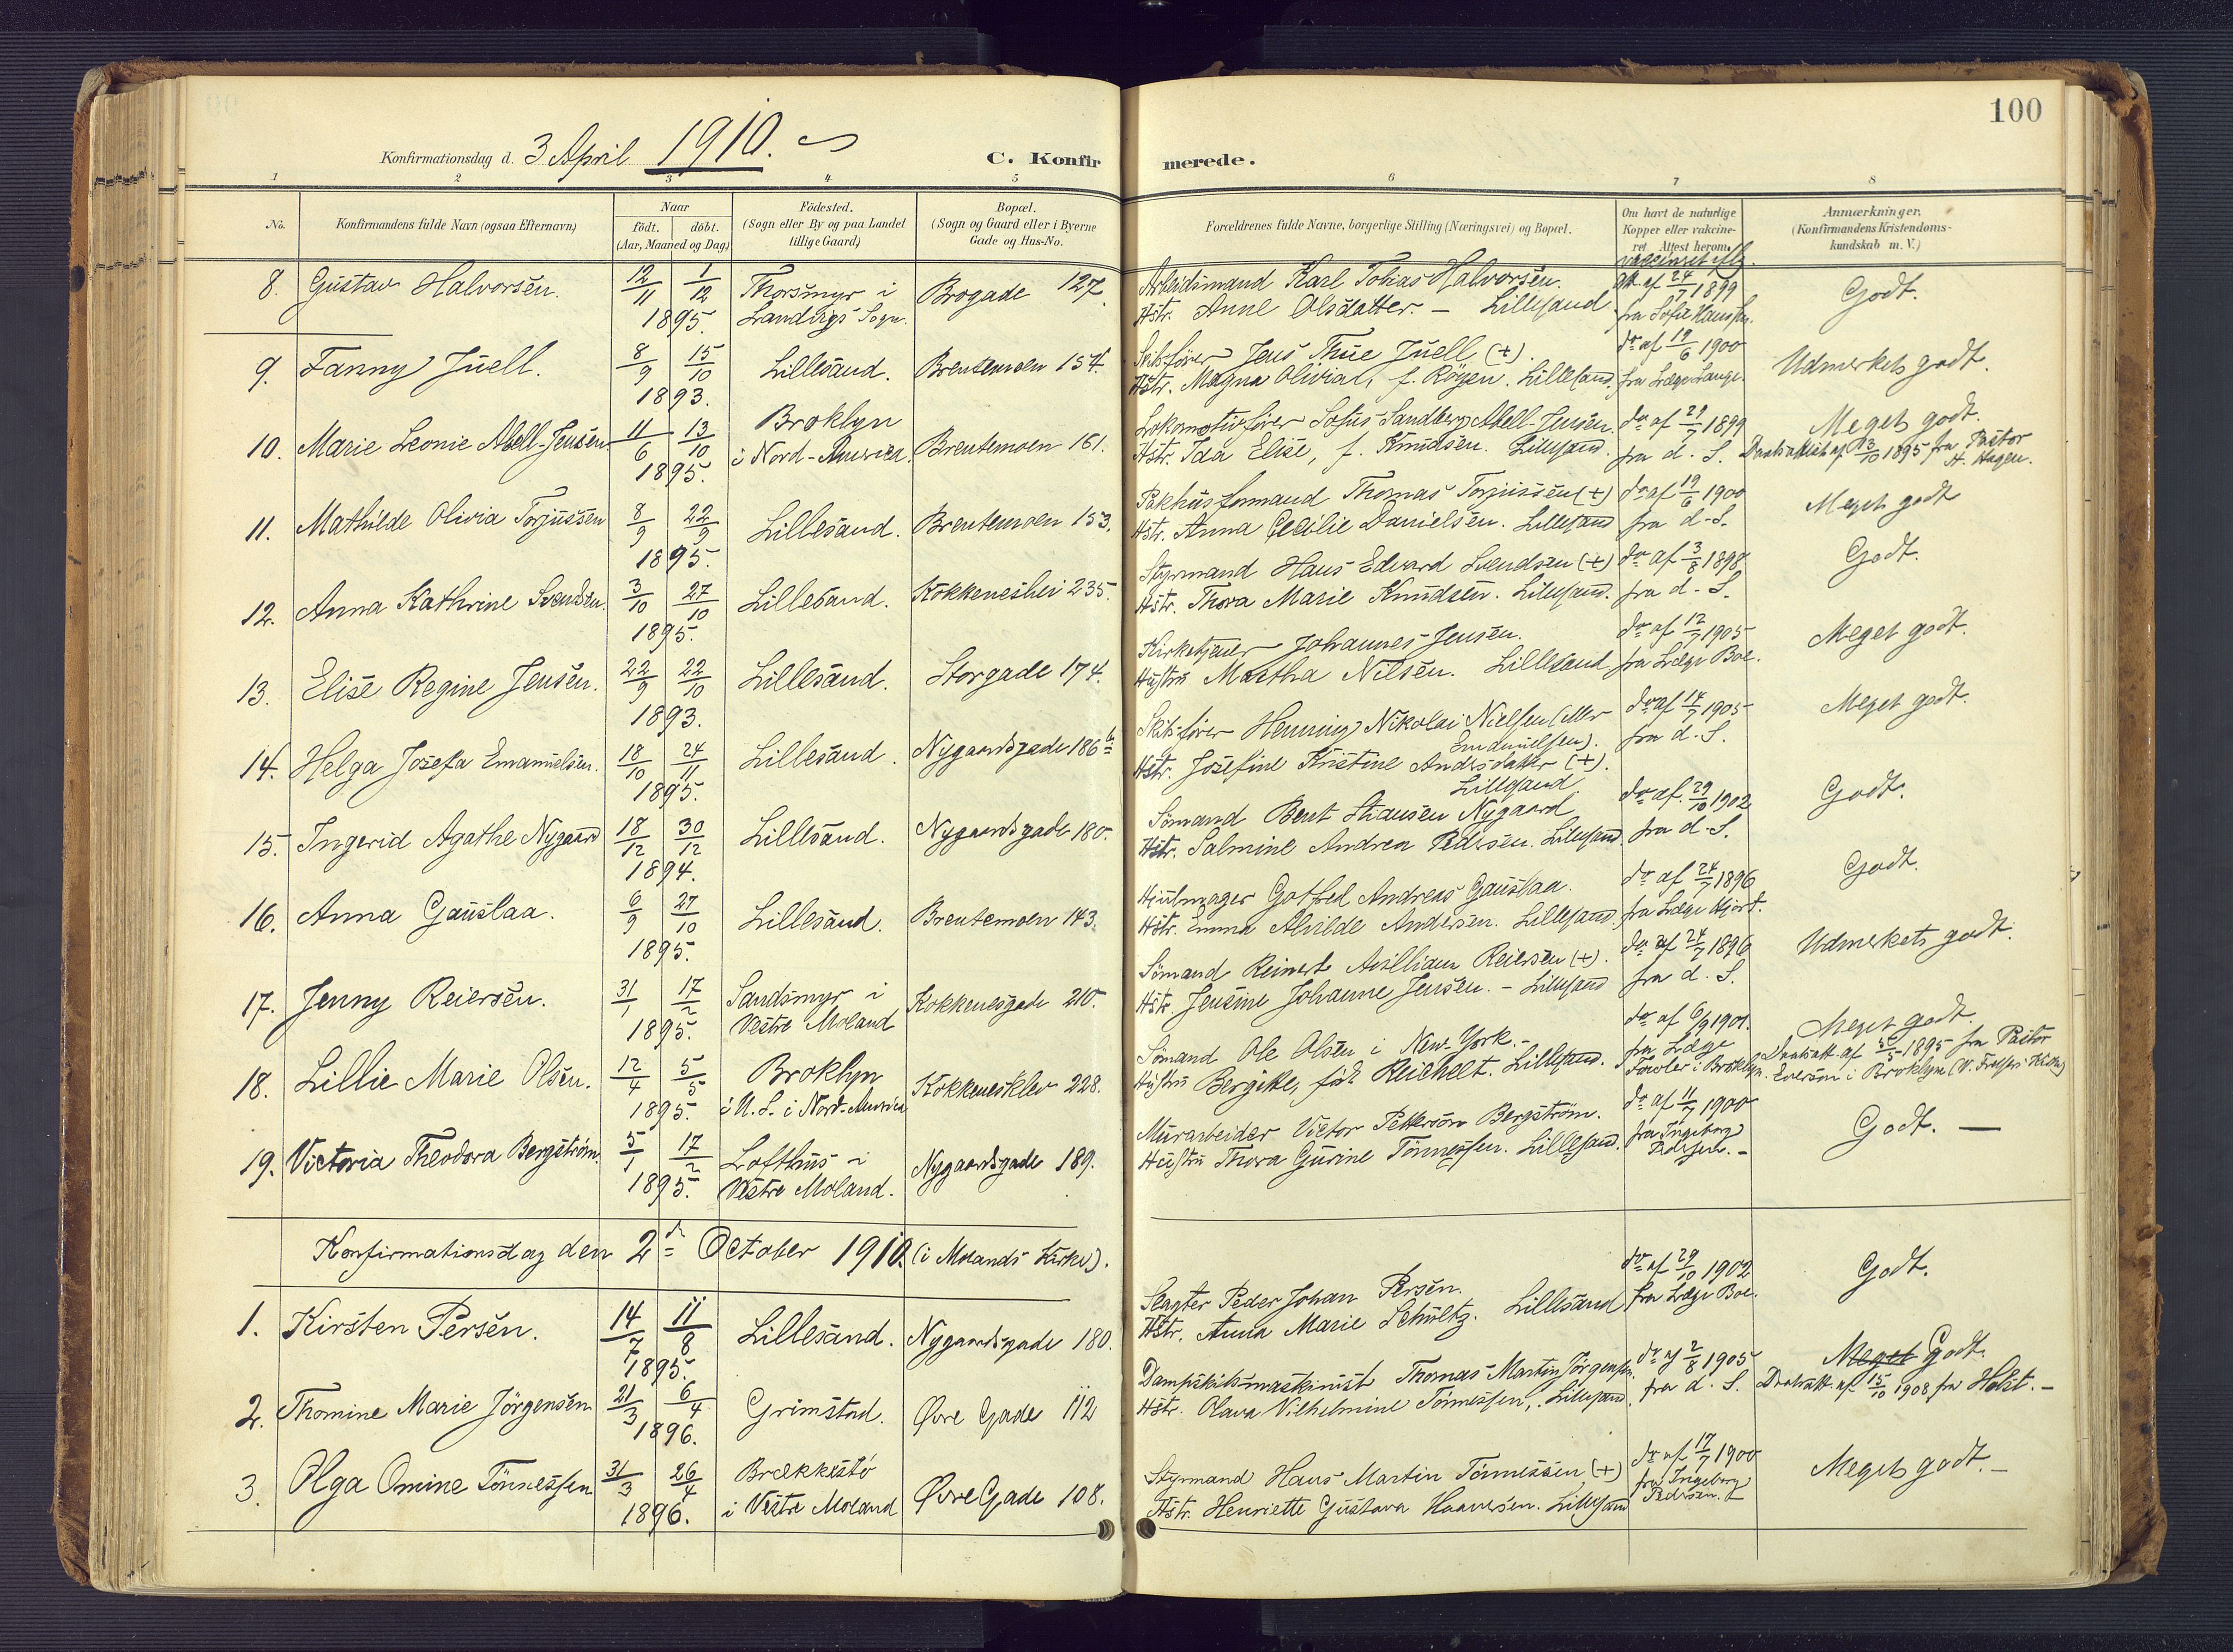 100
Konfirmationsdag d. 3 April 1910. C. Konfirmerede.
1 2 3 4 5 6 7 8
No. Konfirmandens fulde Navn (ogsaa Efternavn) Naar født. døbt. (Aar, Maaned og Dag) Födested. (Sogn eller By og paa Landet tillige Gaard) Bopæl. (Sogn og Gaard eller i Byerne Gade og Hus-No.
Forældrenes fulde Navne, borgerlige Stilling (Næringsvei) og Bopæl. Om havt de naturlige Kopper eller vakcineret. Attest herom. Anmærkninger. (Konfirmandens Kristendomskundskab m. V.)
8. Gustav Halvorsen. 12/11 1/12 1895. Thorsmyr i Landvigs Sogn. Brogade 127.
Arbeidsmand Karl Tobias Halvorsen.
Hstr. Anne Olsdatter. – Lillesand
vaccineret iflg. att. af 24/7 1899 fra Sofie Hansen. Godt.
9. Fanny Juell. 8/9 15/10 1893. Lillesand. Brentemoen 154.
Skibsfører Jens Thue Juell (+).
Hstr. Magna Olivia, f. Røyen. Lillesand.
do af 19/6 1900 fra Læge Lange. Udmerkets godt.
10. Marie Leonie Abell-Jensen 11/6 13/10 1895. Broklyn i Nord-America. Brentemoen 161.
Lokomotivfører Sofus Sandberg Abell-Jensen.
Hstr. Ida Elise, f. Knudsen. Lillesand.
do af 29/7 1899 fra d. S. Meget godt.
Daabsattest af 13/10 1895 fra Pastor H. Hagen.
11. Mathilde Olivia Torjussen 8/9 22/9 1895. Lillesand. Brentemoen 153.
Pakhusformand Thomas Torjussen (+)
Hstr. Anna Cecilie Danielsen. Lillesand
do af 19/6 1900 fra d. S. Meget godt
12. Anna Kathrine Svendsen. 3/10 27/10 1895. Lillesand. Kokkeneshei 235.
Styrmand Hans Edvard Svendsen (+)
Hstr. Thora Marie Knudsen. Lillesand.
do af 3/8 1898 fra d. S. Godt.
13. Elise Regine Jensen. 22/9 22/10 1893. Lillesand. Storgade 174.
Kirketjener Johannes Jensen.
Hustru Martha Nilsen. Lillesand
do af 12/7 1905 fra Læge Boe. Meget godt.
14. Helga Josefa Emanuelsen. 18/10 24/11 1895. Lillesand. Nygaardsgade 186 b
Skibsfører Henning Nikolai Nielsen (eller Emanuelsen).
Hstr. Josefine Kristine Andersdatter (+). Lillesand.
do af 14/7 1905 fra d. S. Meget godt.
15. Ingerid Agathe Nygaard 18/12 30/12 1894. Lillesand. Nygaardsgade 180.
Sömand Bent Stiansen Nygaard
Hstr. Salmine Andrea Pedersen. Lillesand.
do af 29/10 1902 fra d. S. Godt.
16. Anna Gauslaa. 6/9 27/10 1895. Lillesand. Brentemoen 143.
Hjulmager Gotfred Andreas Gauslaa.
Hstr. Emma Alvilde Andersen. Lillesand.
do af 24/7 1896 fra Læge Hjort. Godt.
17. Jenny Reiersen. 31/1 17/2 1895. Sandsmyr i Vestre Moland Kokkenesgade 210.
Sömand Reinert Avilliam Reiersen (+).
Hstr. Jensine Johanne Jensen. – Lillesand
do af 24/7 1896 fra d. S. Udmerkets godt.
18. Lillie Marie Olsen. 12/4 5/5 1895. Broklyn i U. S. i Nord-America Kokkenesklev 228.
Sömand Ole Olsen i New-York. –
Hustru Bergitte, født Reichelt. Lillesand.
do af 6/9 1901. fra Læge Fowler i Broklyn. Meget godt.
Daabsatt. af 5/5 1895 fra Pastor Everson i Broklyn
19. Victoria Theodora Bergström. 5/1 17/2 1895. Lofthus i Vestre Moland. Nygaardsgade 189.
Murarbeider Victor Petterson Bergström.
Hustru Thora Gurine Tönnessen. Lillesand.
do af 11/7 1900 fra Ingeborg Pedersen. – Godt. —
Konfirmationsdag den 2den October 1910. (i Molands Kirke).
1. Kirsten Persen. 14/7 11/8 1895. Lillesand. Nygaardsgade 180.
Slagter Peder Johan Persen.
Hstr. Anna Marie Schultz. Lillesand
do af 29/10 1902 fra Læge Boe. Godt.
2. Thomine Marie Jörgensen 21/3 6/4 1896. Grimstad. Øvre Gade 112
Dampskibsmaskinist Thomas Martin Jörgensen.
Hstr. Olava Vilhelmine Tönnessen, Lillesand.
do af 2/8 1905 fra d. S. Meget Godt.
Daabsatt. af 15/10 1908 fra Holst. –
3. Olga Omine Tönnessen 31/3 26/4 1896. Brækkestö i Vestre Moland Øvre Gade 108.
Styrmand Hans Martin Tönnessen (+)
Hstr. Henriette Gustava Haavesen. Lillesand
do af 17/7 1900 fra Ingeborg Pedersen. Meget godt. –